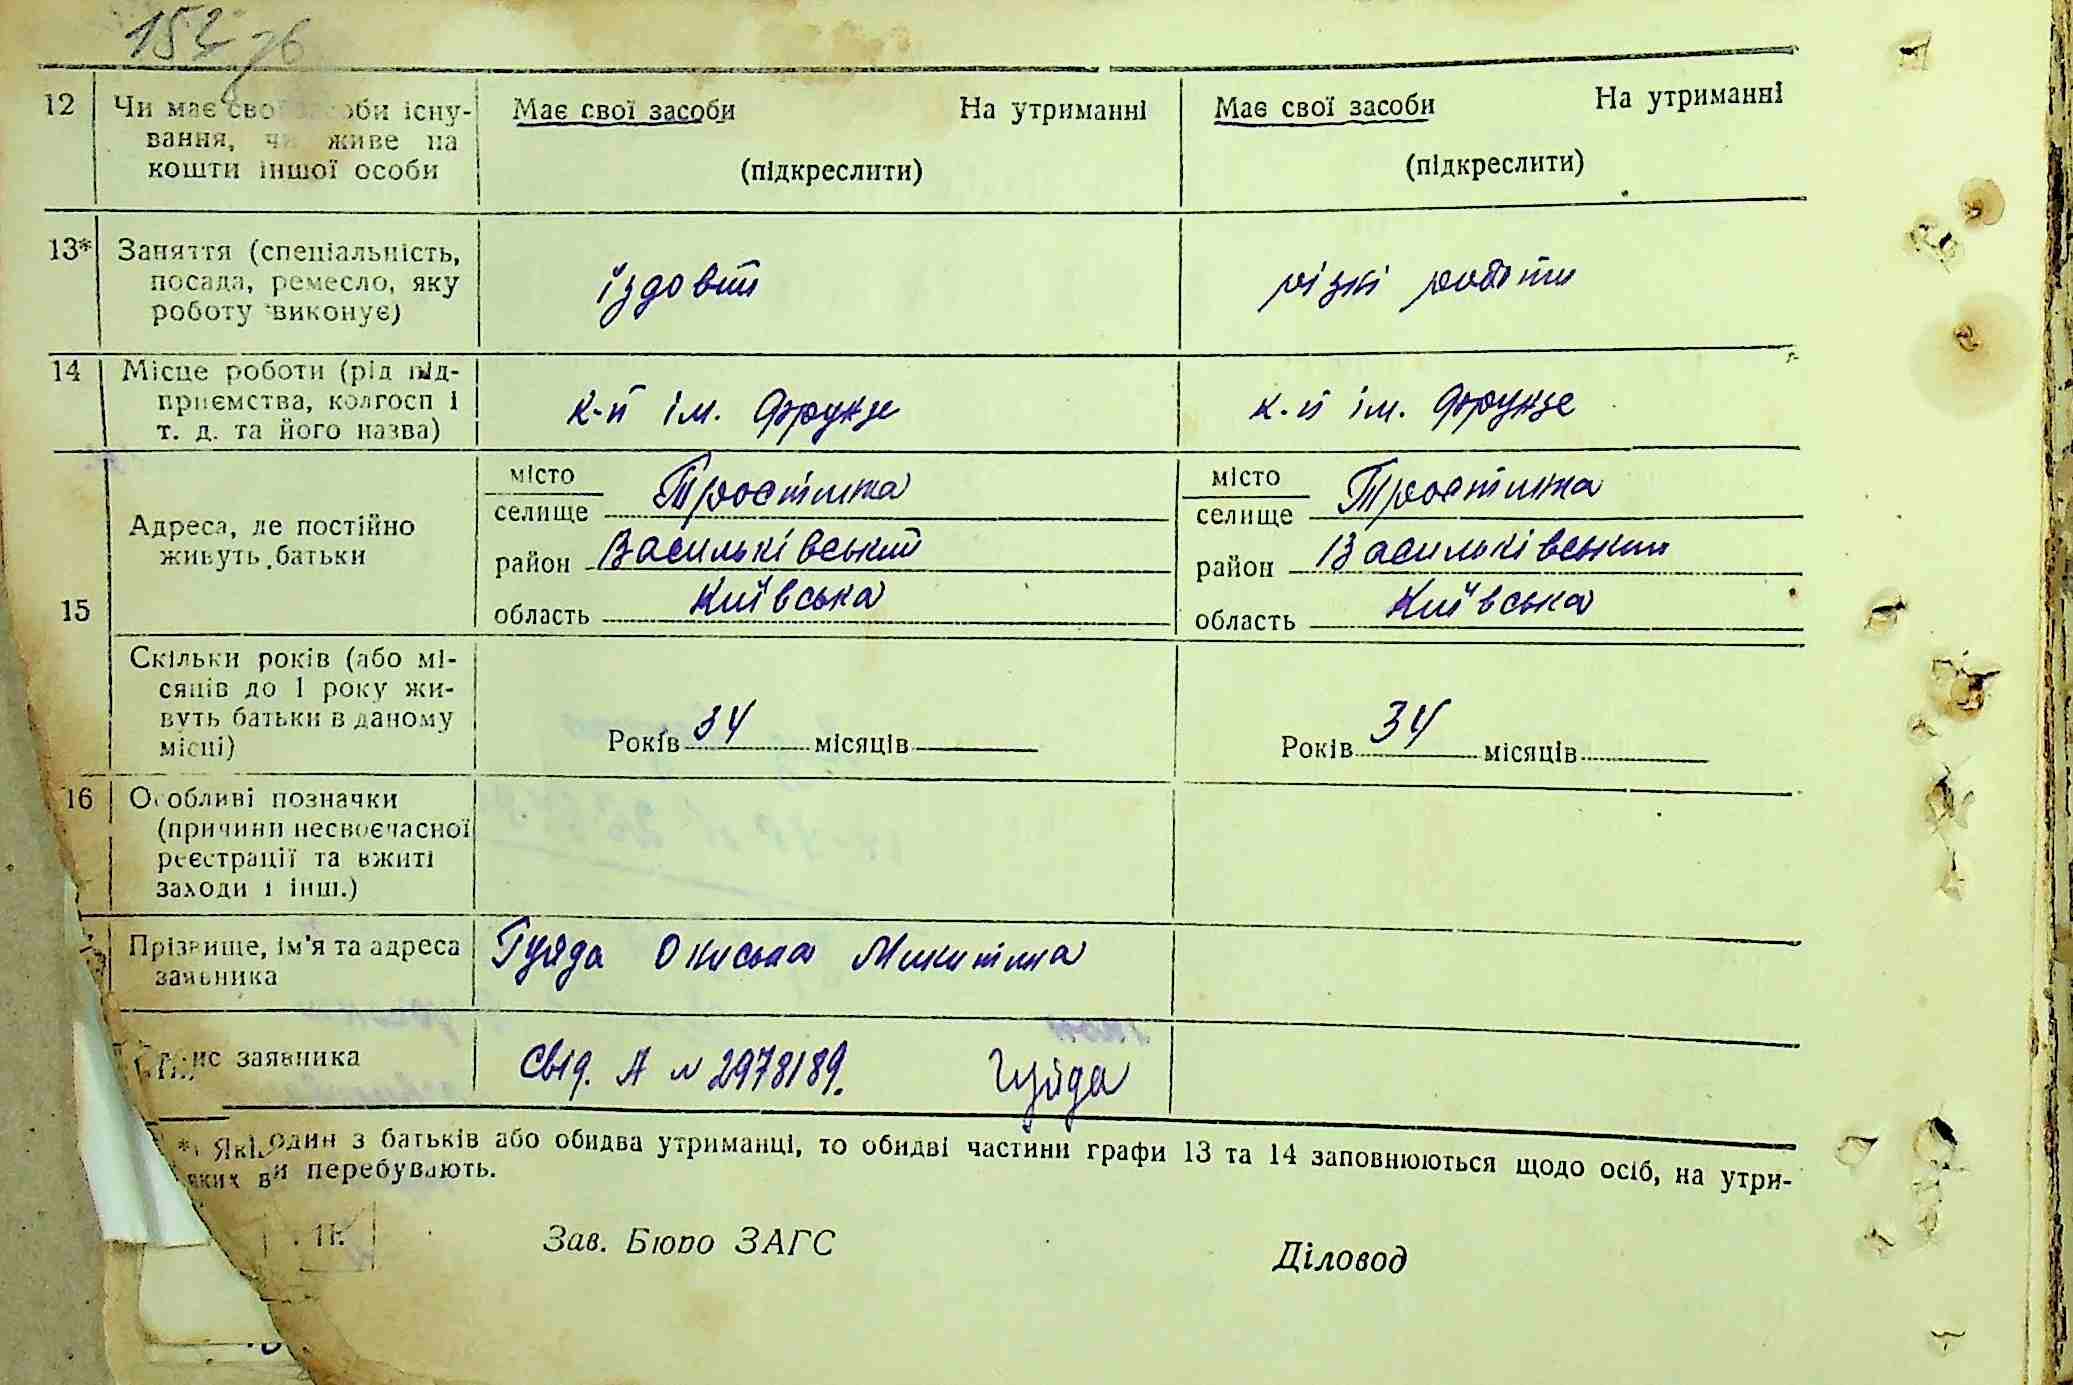 152 зб
12 Чи має свої засоби існу- Має свої засоби На утриманні Має свої засоби На утриманні
вання, чи живе на
кошти іншої особи (підкреслити) (підкреслити)
13* Заняття (спеціальність,
посада, ремесло, яку їздовий різні роботи
роботу виконує)
14 Місце роботи (рід під-
приємства, колгосп і к-п ім. Фрунзе к-п ім. Фрунзе
т. д. та його назва)
місто місто
селище Тростинка селище Тростинка
Адреса, де постійно
живуть батьки район Васильківський район Васильківський
15 область Київська область Київська
Скільки років (або мі-
сяців до 1 року жи-
вуть батьки в даному
місці) Років 34 місяців Років 34 місяців
16 Особливі позначки
(причини несвоєчасної
реєстрації та вжиті
заходи і інш.)
Прізвище, ім'я та адреса Гуйда Ониська Микитівна
заявника
Підпис заявника Свід. А № 2978189. Гуйда
*) Якщо один з батьків або обидва утриманці, то обидві частини графи 13 та 14 заповнюються щодо осіб, на утри-
яких ви перебувають.
Зав. Бюро ЗАГС Діловод